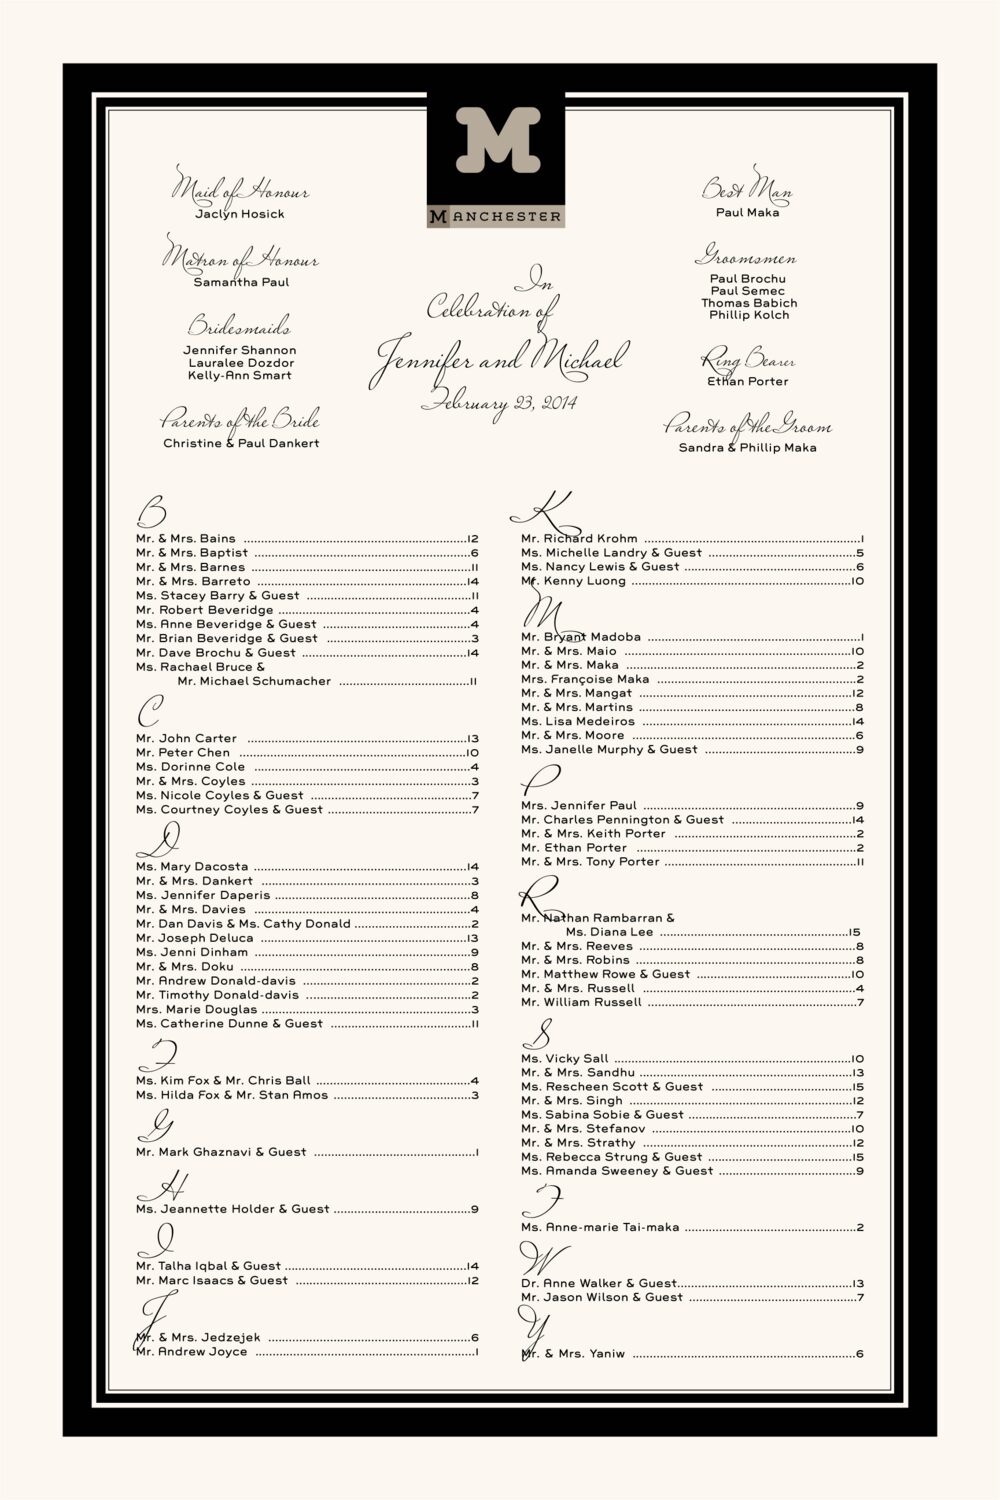 M
MANCHESTER
Maid of Honour
Jaclyn Hosick
Matron of Honour
Samantha Paul
Bridesmaids
Jennifer Shannon
Lauralee Dozdor
Kelly-Ann Smart
Parents of the Bride
Christine & Paul Dankert
In
Celebration of
Jennifer and Michael
February 23, 2014
Best Man
Paul Maka
Groomsmen
Paul Brochu
Paul Semec
Thomas Babich
Phillip Kolch
Ring Bearer
Ethan Porter
Parents of the Groom
Sandra & Phillip Maka
B
Mr. & Mrs. Bains ........ 12
Mr. & Mrs. Baptist ........ 6
Mr. & Mrs. Barnes ........ 11
Mr. & Mrs. Barreto ........ 14
Ms. Stacey Barry & Guest ........ 11
Mr. Robert Beveridge ........ 4
Ms. Anne Beveridge & Guest ........ 4
Mr. Brian Beveridge & Guest ........ 3
Mr. Dave Brochu & Guest ........ 14
Ms. Rachael Bruce &
Mr. Michael Schumacher ........ 11
C
Mr. John Carter ........ 13
Mr. Peter Chen ........ 10
Ms. Dorinne Cole ........ 4
Mr. & Mrs. Coyles ........ 3
Ms. Nicole Coyles & Guest ........ 7
Ms. Courtney Coyles & Guest ........ 7
D
Ms. Mary Dacosta ........ 14
Mr. & Mrs. Dankert ........ 3
Ms. Jennifer Daperis ........ 8
Mr. & Mrs. Davies ........ 4
Mr. Dan Davis & Ms. Cathy Donald ........ 2
Mr. Joseph Deluca ........ 13
Ms. Jenni Dinham ........ 9
Mr. & Mrs. Doku ........ 8
Mr. Andrew Donald-davis ........ 2
Mr. Timothy Donald-davis ........ 2
Mrs. Marie Douglas ........ 3
Ms. Catherine Dunne & Guest ........ 11
F
Ms. Kim Fox & Mr. Chris Ball ........ 4
Ms. Hilda Fox & Mr. Stan Amos ........ 3
G
Mr. Mark Ghaznavi & Guest ........ 1
H
Ms. Jeannette Holder & Guest ........ 9
I
Mr. Talha Iqbal & Guest ........ 14
Mr. Marc Isaacs & Guest ........ 12
J
Mr. & Mrs. Jedzejek ........ 6
Mr. Andrew Joyce ........ 1
K
Mr. Richard Krohm ........ 1
Ms. Michelle Landry & Guest ........ 5
Ms. Nancy Lewis & Guest ........ 6
Mr. Kenny Luong ........ 10
M
Mr. Bryant Madoba ........ 1
Mr. & Mrs. Maio ........ 10
Mr. & Mrs. Maka ........ 2
Mrs. Françoise Maka ........ 2
Mr. & Mrs. Mangat ........ 12
Mr. & Mrs. Martins ........ 8
Ms. Lisa Medeiros ........ 14
Mr. & Mrs. Moore ........ 6
Ms. Janelle Murphy & Guest ........ 9
P
Mrs. Jennifer Paul ........ 9
Mr. Charles Pennington & Guest ........ 14
Mr. & Mrs. Keith Porter ........ 2
Mr. Ethan Porter ........ 2
Mr. & Mrs. Tony Porter ........ 11
R
Mr. Nathan Rambarran &
Ms. Diana Lee ........ 15
Mr. & Mrs. Reeves ........ 8
Mr. & Mrs. Robins ........ 8
Mr. Matthew Rowe & Guest ........ 10
Mr. & Mrs. Russell ........ 4
Mr. William Russell ........ 7
S
Ms. Vicky Sall ........ 10
Mr. & Mrs. Sandhu ........ 13
Ms. Rescheen Scott & Guest ........ 15
Mr. & Mrs. Singh ........ 12
Ms. Sabina Sobie & Guest ........ 7
Mr. & Mrs. Stefanov ........ 10
Mr. & Mrs. Strathy ........ 12
Ms. Rebecca Strung & Guest ........ 15
Ms. Amanda Sweeney & Guest ........ 9
T
Ms. Anne-marie Tai-maka ........ 2
W
Dr. Anne Walker & Guest ........ 13
Mr. Jason Wilson & Guest ........ 7
Y
Mr. & Mrs. Yaniw ........ 6